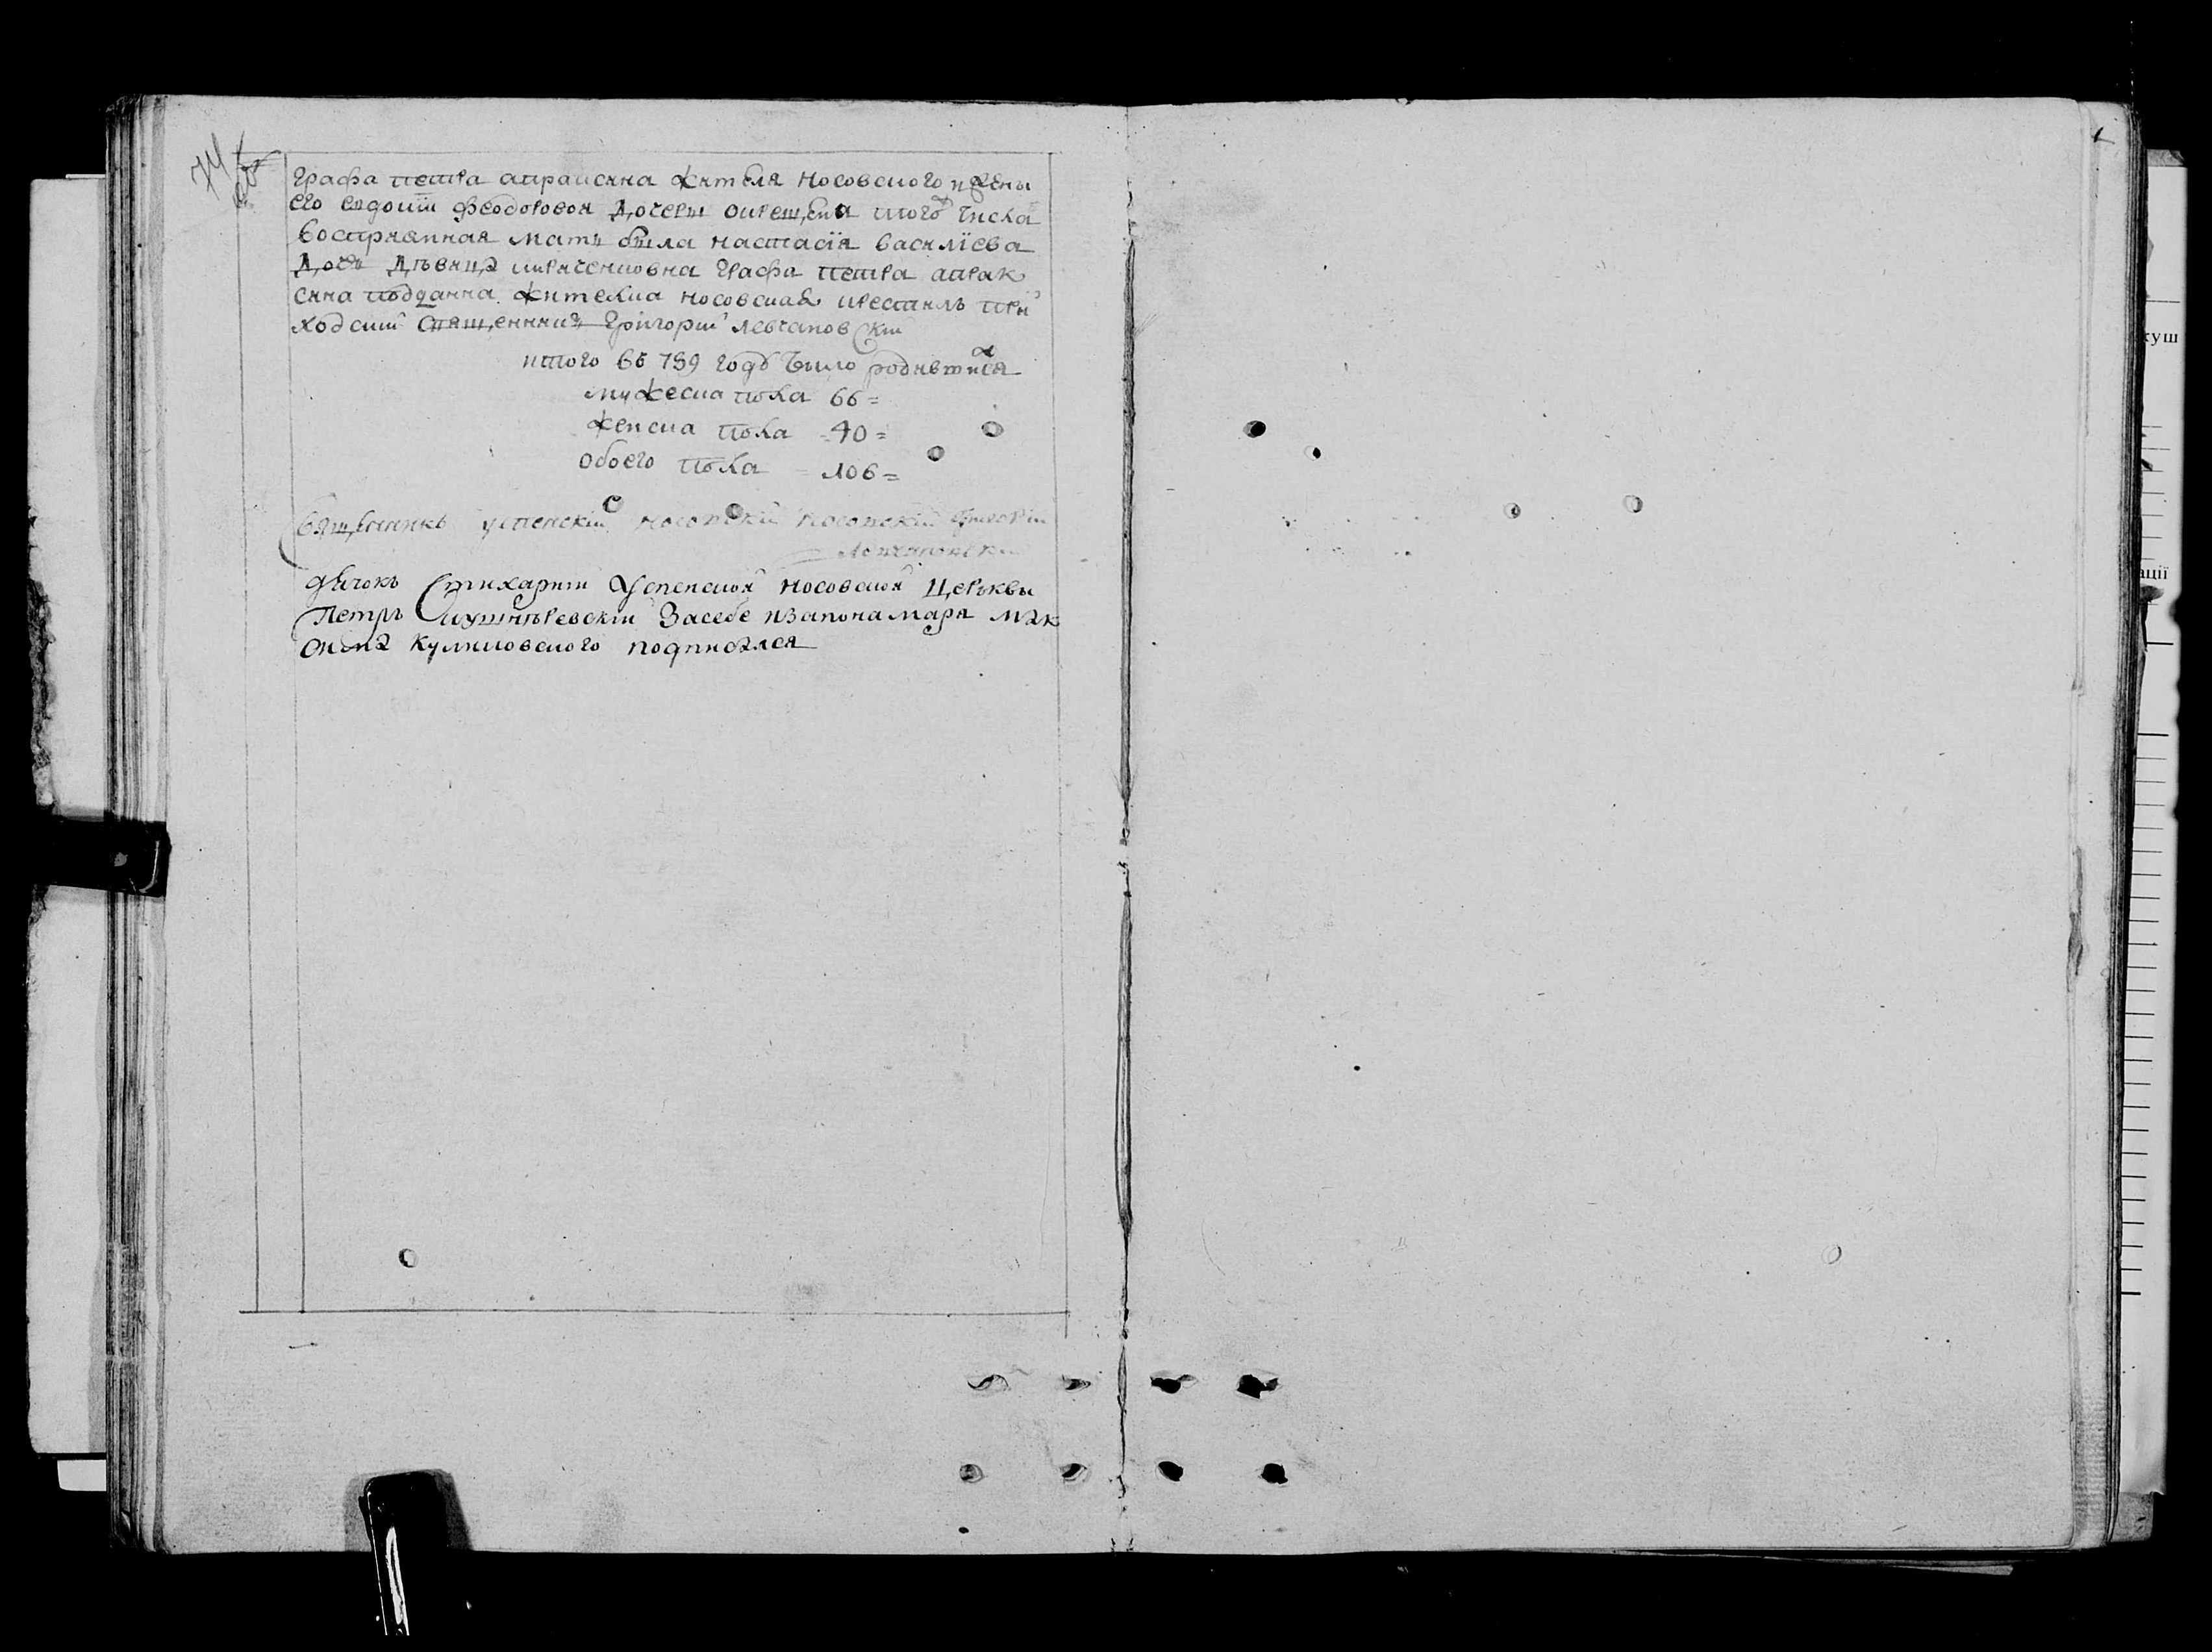 74
графа петра апраѯина жителя носовского и жены
его евдокіи феодоровои дочеры окрещена того ж числа
восприемная мать была настасія василіева
дочь девица кириченковна графа петра апрак
сина подданна жителка носовская крестилъ при
ходскій священникъ григорій левчановскій
итого въ 759 году было родившихся
мужеска пола 66 =
женска пола = 40 =
обоего пола = 106 =
священникъ успенскій носовскій григорій
дячокъ стихарній успенской носовской церквы
Петръ за себе и за понамаря мак
сима Куликовского подписался
куш
ції